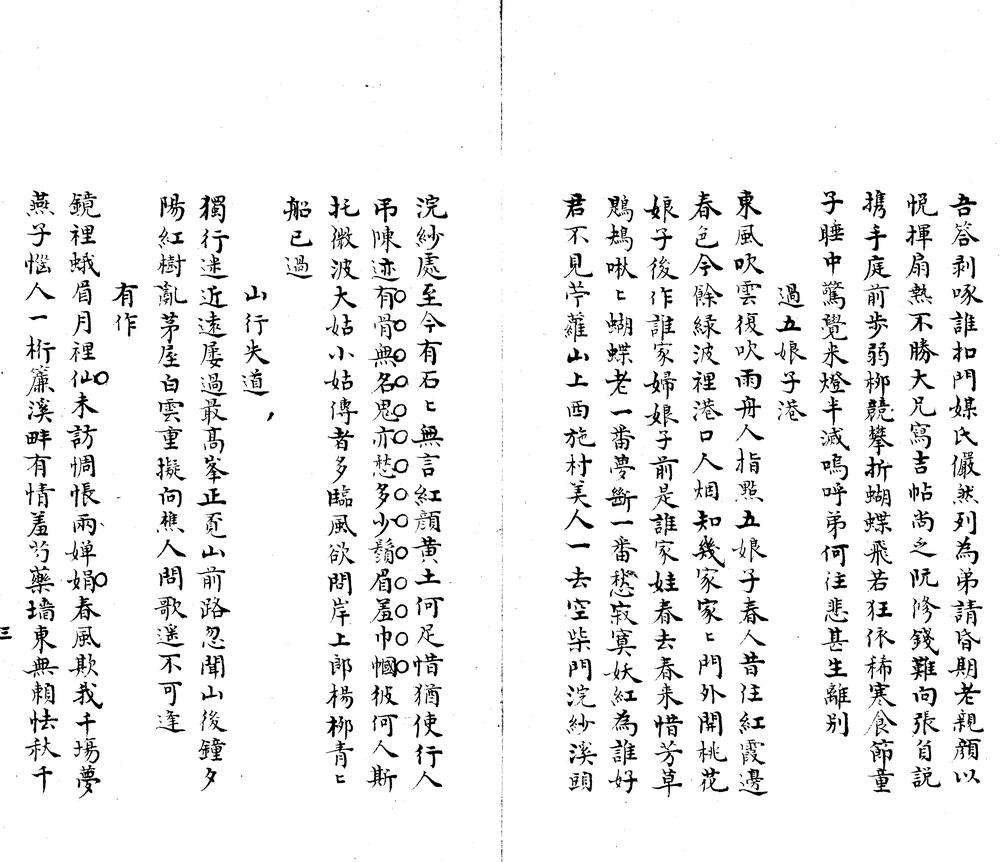 吾答剥啄誰扣門媒氏儼然列為弟請昏期老親顔以
悦揮扇熱不勝大兄寫吉帖尚之阮修錢難向張負説
携手庭前歩弱柳競攀折蝴蝶飛若狂依稀寒食節童
子睡中驚覺来燈半滅嗚呼弟何往悲甚生離别
過五娘子港
東風吹雲復吹雨舟人指點五娘子春人昔住紅霞邊
春色今餘緑波裡港口人烟知幾家家〻門外開桃花
娘子後作誰家婦娘子前是誰家娃春去春来惜芳草
鷓鴣啾〻蝴蝶老一番夢斷一番愁寂寞妖紅為誰好
君不見苧蘿山上西施村美人一去空柴門浣紗溪頭
浣紗處至今有石〻無言紅顔黄土何足惜猶使行人
弔陳迹有骨無名鬼亦愁多少鬚眉羞巾幗彼何人斯
托微波大姑小姑傳者多臨風欲問岸上郎楊柳青〻
船已過
山行失道
獨行迷近遠屡過最高峯正覓山前路忽聞山後鐘夕
陽紅樹亂茅屋白雲重擬向樵人問歌遥不可逢
有作
鏡裡蛾眉月裡仙未訪惆悵兩嬋娟春風欺我千場夢
燕子惱人一桁簾溪畔有情羞芍藥墻東無賴怯秋千
三